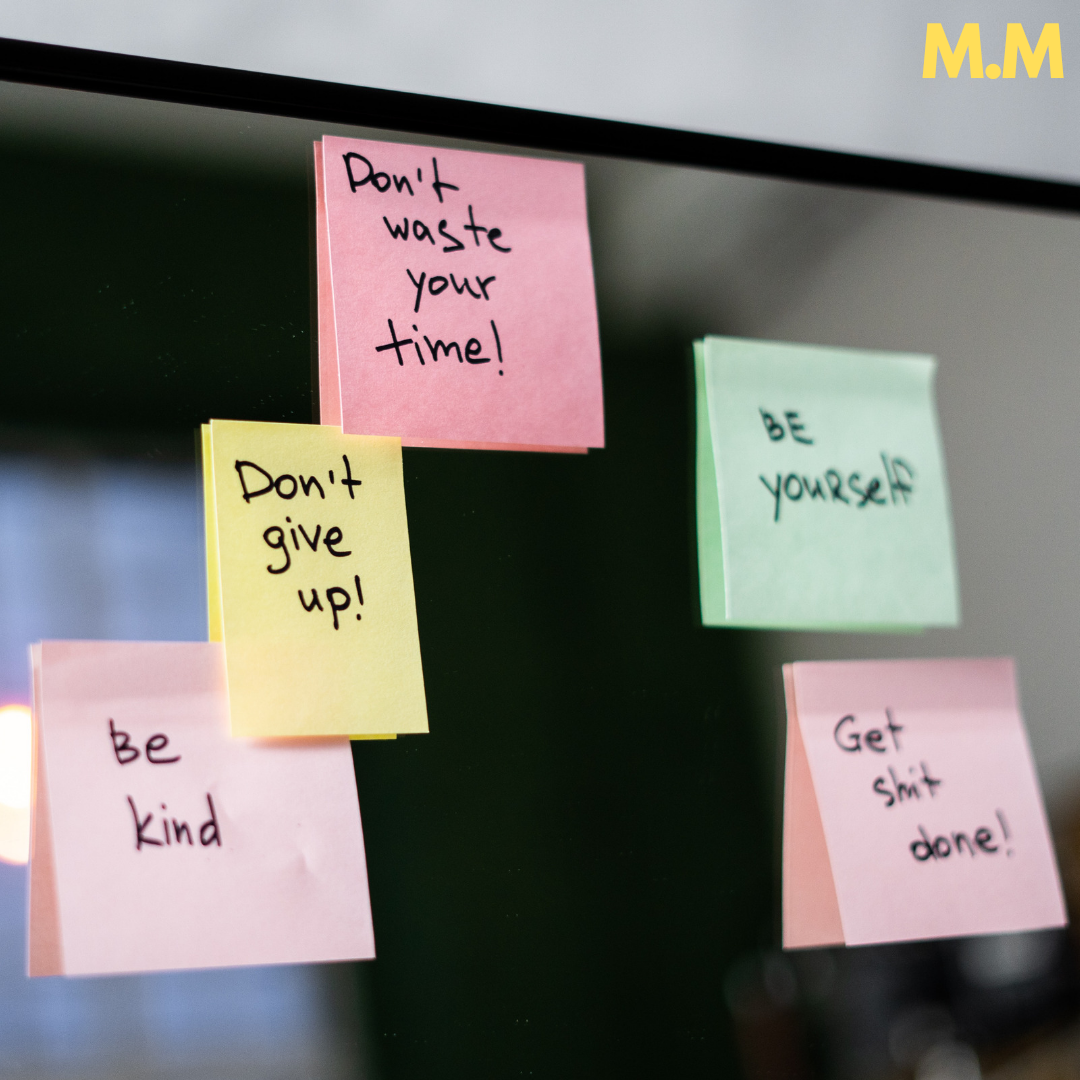 M.M
Don't
waste
your
time!
BE
youRself
Don't
give
up!
Be
kind
Get
shit
done!